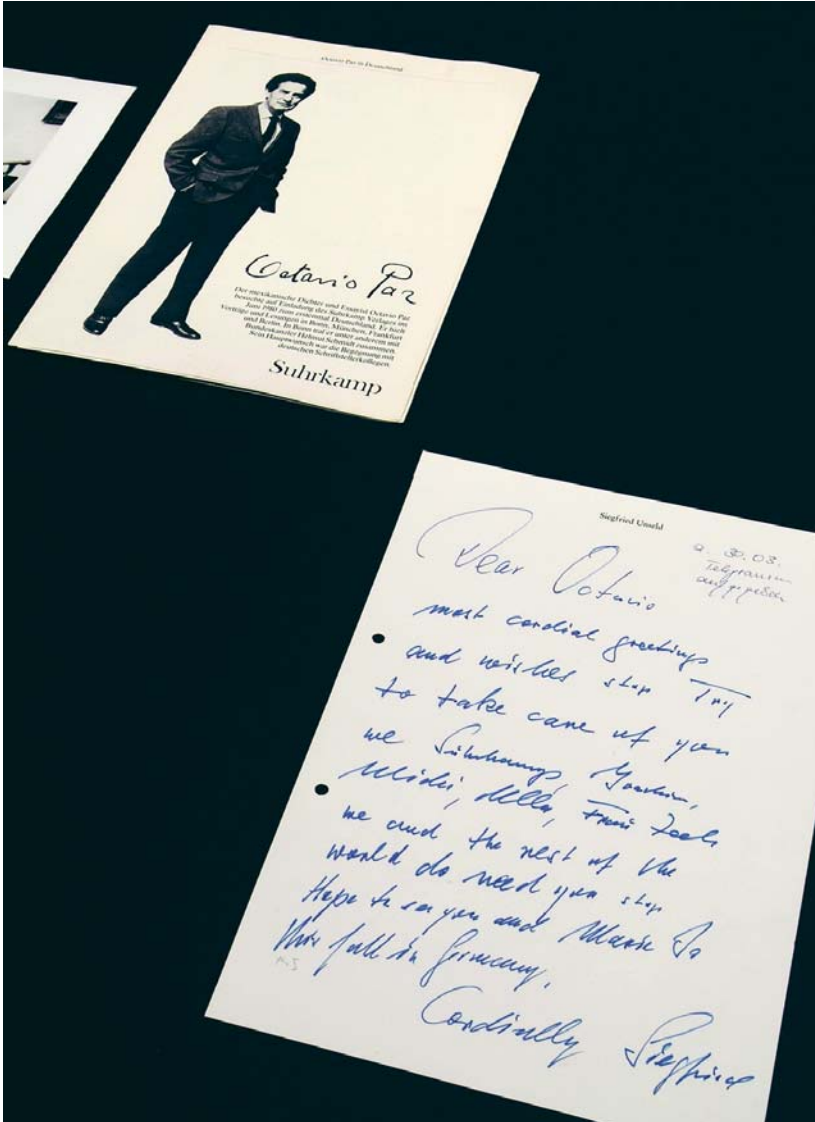 Octavio Paz in Deutschland
Octavio Paz
Der mexikanische Dichter und Essayist Octavio Paz
besuchte auf Einladung des Suhrkamp Verlages im
Juni 1980 zum erstenmal Deutschland. Er hielt
Vorträge und Lesungen in Bonn, München, Frankfurt
und Berlin. In Bonn traf er unter anderem mit
Bundeskanzler Helmut Schmidt zusammen.
Sein Hauptwunsch war die Begegnung mit
deutschen Schriftstellerkollegen.
Suhrkamp
Siegfried Unseld
30.03.
Telegramm
aufgegeben
Dear Octavio
most cordial greetings
and wishes stop Try
to take care of you
we Suhrkamps, Joachim,
Michi, Frau Zeeh
we and the rest of the
world do need you stop
Hope to see you and Marie Jo
this fall in Germany.
Cordially Siegfried